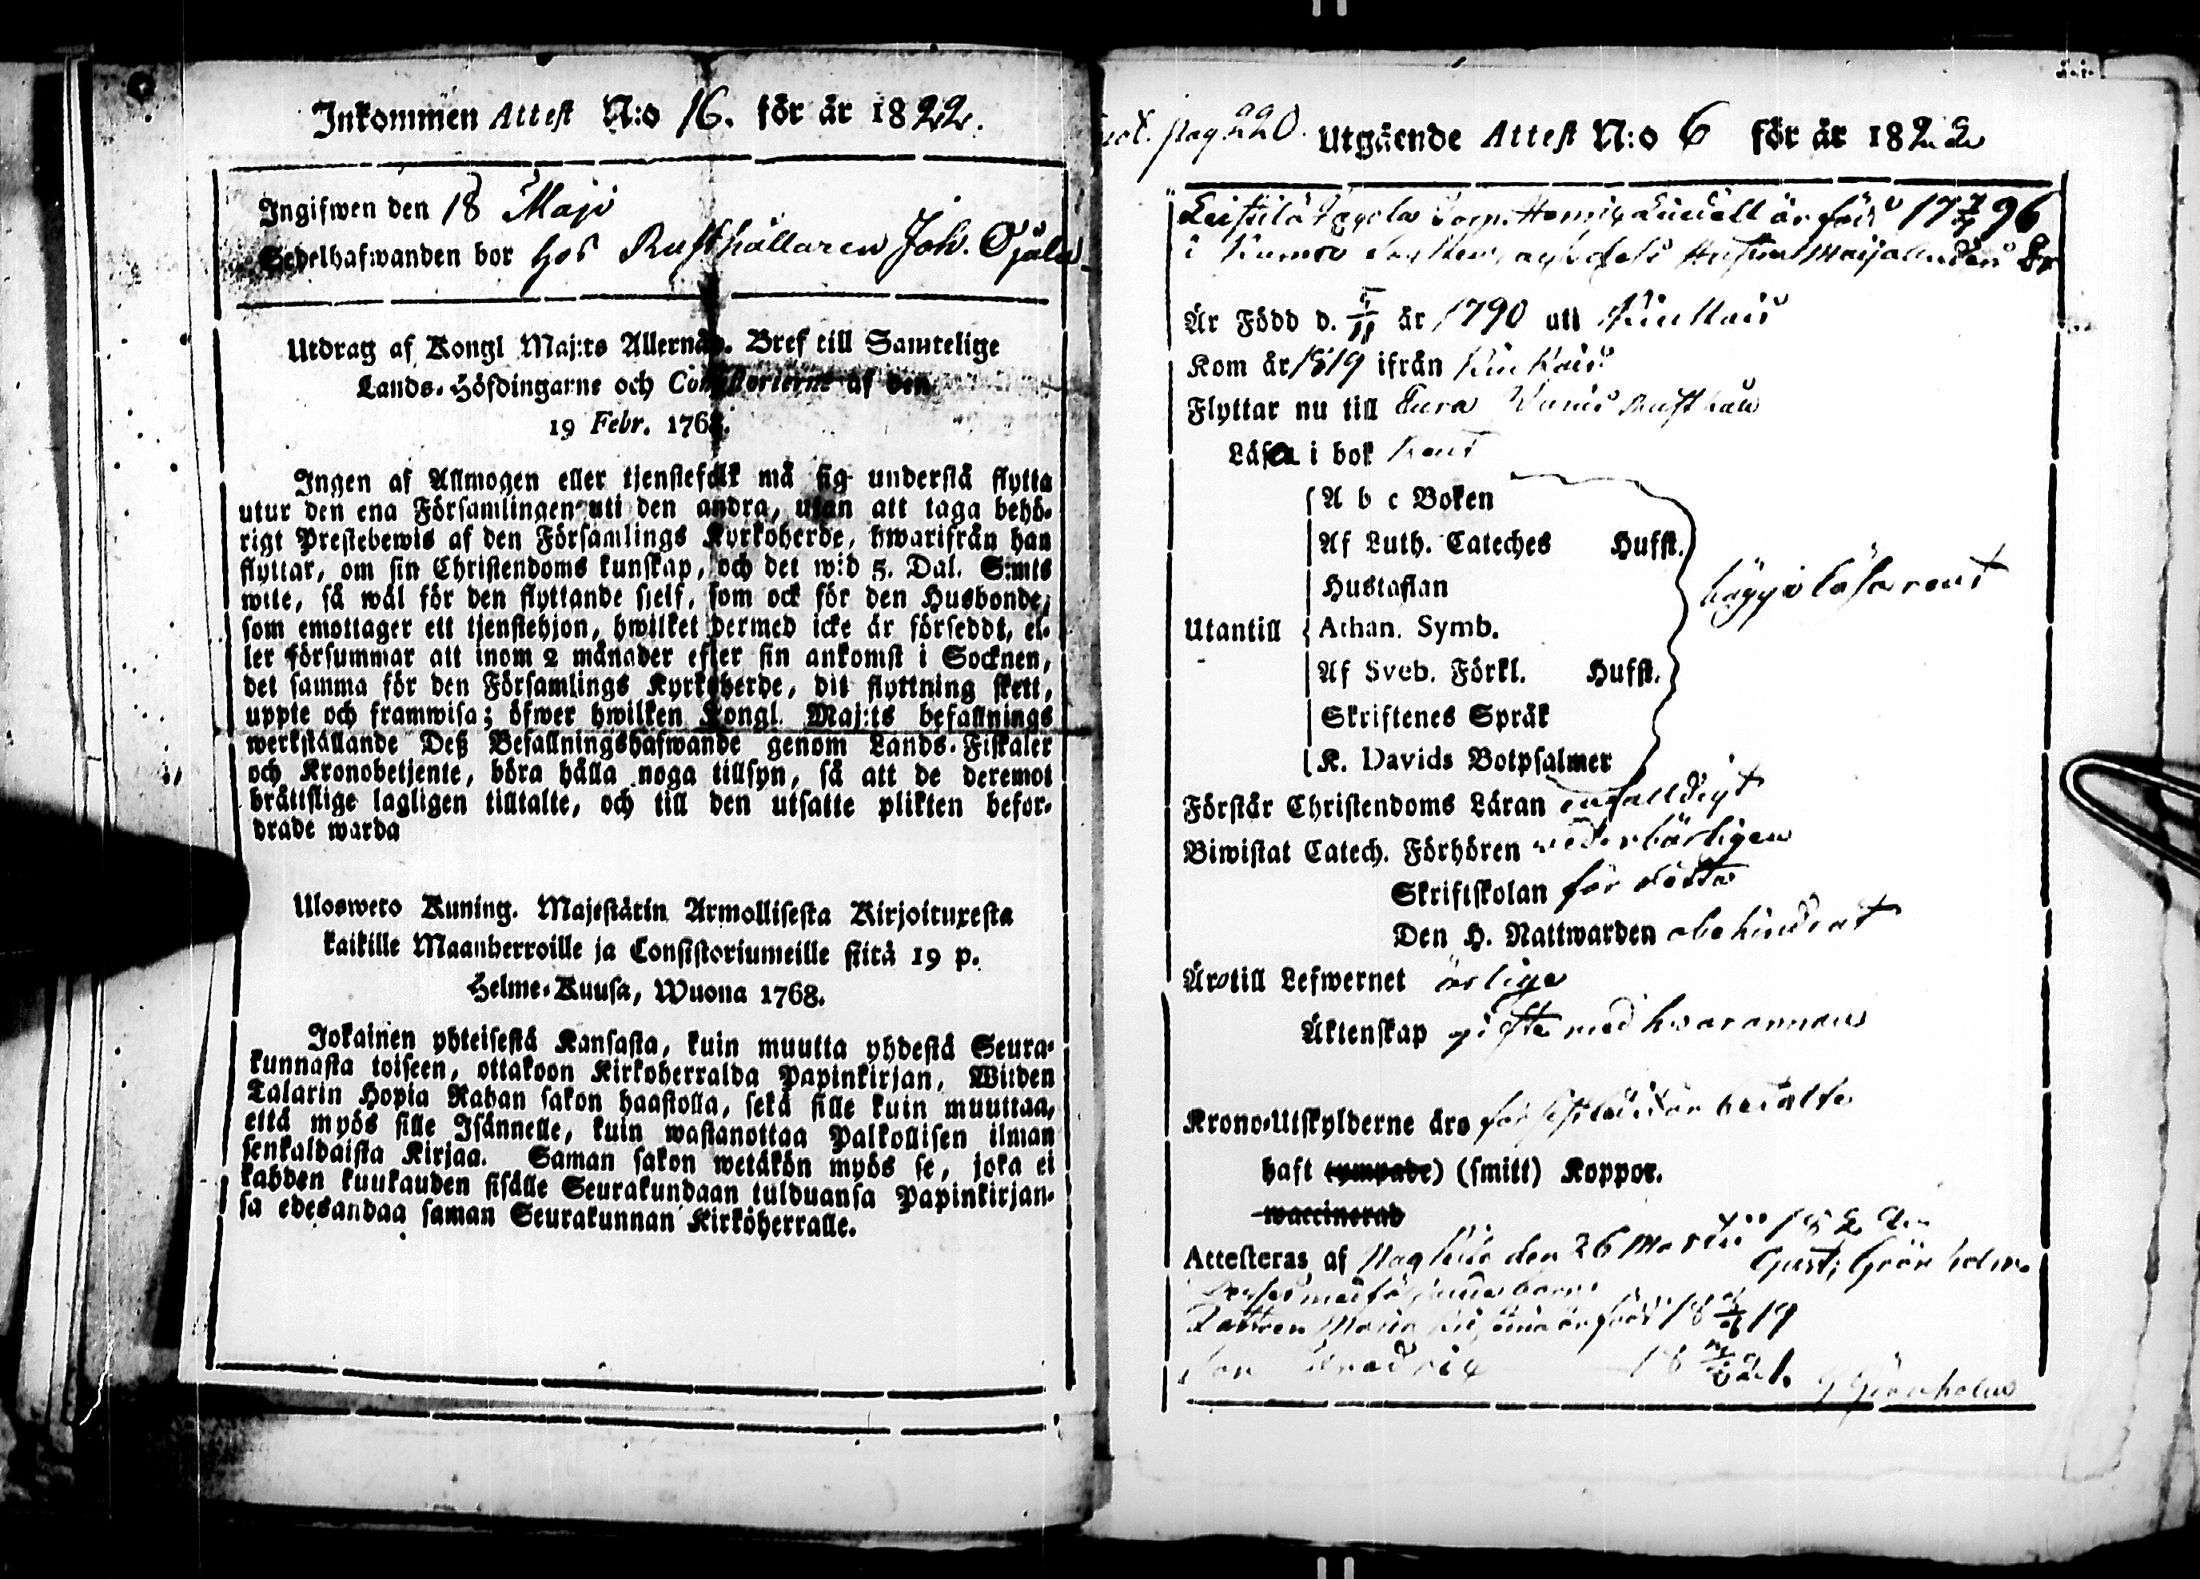 Inkommen Attest N:o 16. för år 1822.
Ingifwen den 18 Maji
Sedelhafwanden bor hos Rusthållaren Joh. Ojala
Utdrag af Kongl Maj:ts Allernåd. Bref till Samtelige
Lands-Höfdingarne och Consistorierne af den
19 Febr. 1768.
Ingen af Allmogen eller tjenstefolk må sig understå flytta
utur den ena Församlingen uti den andra, utan att taga behö-
rigt Prestebewis af den Församlings Kyrkoherde, hwarifrån han
flyttar, om sin Christendoms kunskap, och det wid 5. Dal. S:mts
wite, så wäl för den flyttande sjelf, som ock för den Husbonde,
som emottager ett tjenstehjon, hwilket dermed icke är försedt, el-
ler försummar att inom 2 månader efter sin ankomst i Socknen,
det samma för den Församlings Kyrkoherde, dit flyttning skett,
uppte och framwisa; öfwer hwilken Kongl. Maj:ts befallnings
werkställande Deß Befallningshafwande genom Lands-Fiskaler
och Kronobetjente, böra hålla noga tillsyn, så att de deremot
bråttslige lagligen tilltalte, och till den utsatte plikten befor-
drade warda
Uloswero Kuning. Majestärin Armollisesta Kirjoituxesta
kaikille Maanherroille ja Consistoriumeille siitä 19 p.
Helme-Kuusa, Wuona 1768.
Jokainen yhteisestä Kansasta, kuin muutta yhdestä Seura-
kunnasta toiseen, ottakoon Kirkoherralda Papinkirjan, Wiiden
Talarin Hopia Rahan sakon haastolla, sekä sille kuin muuttaa,
että myös sille Isännelle, kuin wastanottaa Palkollisen ilman
senkaldaista Kirjaa. Saman sakon wetäkön myös se, joka ei
kahden kuukauden sisälle Seurakundaan tulduansa Papinkirjan-
sa edesandaa saman Seurakunnan Kirköherralle.
pag 220. Utgående Attest N:o 6 för år 1822
är född 17 96
i Kumo
Är Född d. 5/11 år 1790 uti
Kom år 1819 ifrån
Flyttar nu till Eura
Läsa i bok rent
A b c Boken
Af Luth. Cateches Hufst.
Hustaflan
bägge läsa rent
Utantill Athan. Symb.
Af Sveb. Förkl. Hufst.
Skriftenes Språk
K. Davids Botpsalmer
Förstår Christendoms Läran enfalldigt
Biwistat Catech. Förhören wederbörligen
Skriftskolan för detta
Den H. Nattwarden obehindrat
Äro till Lefwernet ärlige
Äktenskap gifte med hwarannan
Krono-Utskylderne äro betalte
haft (ympade) (smitt) Koppor.
waccinerad
Attesteras af den 26 Martii 1822
Gust. Grönholm
Dottren Maria född 18 19
Son 18 21. G Grönholm